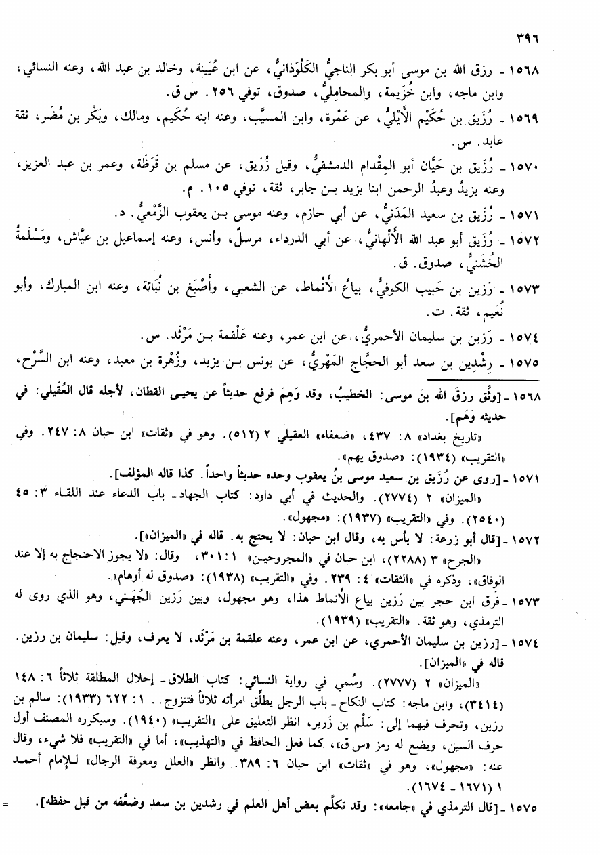 ٣٩٦
١٥٦٨ - رزق الله بن موسى أبو بكر الناجيُّ الكَلْوَذانيُّ، عن ابن عُيَينة، وخالد بن عبد الله، وعنه النسائي،
وابن ماجه، وابن خُزيمة، والمحامليُّ، صدوق، توفي ٢٥٦. س ق.
١٥٦٩ - رُزَيق بن حُكَيْم الأَيْليُّ، عن عَمْرة، وابن المسيَّب، وعنه ابنه حُكَيم، ومالك، وبَكْر بن مُضَر، ثقة
عابد. س.
١٥٧٠ - رُزَيق بن حَيَّان أبو المِقْدام الدمشقيُّ، وقيل زُرَيق، عن مسلم بن قَرَظَة، وعمر بن عبد العزيز،
وعنه يزيدُ وعبدُ الرحمن ابنا يزيد بن جابر، ثقة، توفي ١٠٥. م.
١٥٧١ - رُزَيق بن سعيد المَدَنيُّ، عن أبي حازم، وعنه موسى بن يعقوب الزَّمْعيُّ. د.
١٥٧٢ - رُزَيق أبو عبد الله الأَلْهانيُّ، عن أبي الدرداء، مرسلٌ، وأنس، وعنه إسماعيل بن عيَّاش، ومَسْلَمةُ
الخُشَنيُّ، صدوق. ق.
١٥٧٣ - رَزين بن حَبيب الكوفيُّ، بياعُ الأَنْماط، عن الشعبي، وأَصْبَغ بن نُبَاتة، وعنه ابن المبارك، وأبو
نُعَيم، ثقة. ت.
١٥٧٤ - رَزين بن سليمان الأحمريُّ، عن ابن عمر، وعنه عَلقمة بن مَرْثَد. س.
١٥٧٥ - رِشْدِين بن سعد أبو الحجَّاج المَهْريُّ، عن يونس بن يزيد، وزُهْرة بن معبد، وعنه ابن السَّرْح،
١٥٦٨ -[وثَّق رزقَ الله بنَ موسى: الخطيبُ، وقد وَهِمَ فرفع حديثاً عن يحيى القطان، لأجله قال العُقيلي: في
حديثه وَهَم].
«تاريخ بغداد» ٨: ٤٣٧، «ضعفاء» العقيلي ٢ (٥١٢). وهو في «ثقات» ابن حبان ٨: ٢٤٧. وفي
«التقريب» (١٩٣٤): «صدوق يهم».
١٥٧١ -[روى عن رُزَيق بن سعيد موسى بنُ يعقوب وحده حديثاً واحداً. كذا قاله المؤلف].
«الميزان» ٢ (٢٧٧٤). والحديث في أبي داود: كتاب الجهاد- باب الدعاء عند اللقاء ٣: ٤٥
(٢٥٤٠). وفي «التقريب» (١٩٣٧): «مجهول».
١٥٧٢ -[قال أبو زرعة: لا بأس به، وقال ابن حبان: لا يحتج به. قاله في «الميزان»].
«الجرح» ٣ (٢٢٨٨)، ابن حبان في «المجروحين» ١: ٣٠١، وقال: «لا يجوز الاحتجاج به إلا عند
الوفاق»، وذكره في «الثقات» ٤: ٢٣٩. وفي «التقريب» (١٩٣٨): «صدوق له أوهام».
١٥٧٣ -فرق ابن حجر بين رَزين بياع الأنماط هذا، وهو مجهول، وبين رَزين الجُهَني، وهو الذي روى له
الترمذي، وهو ثقة. «التقريب» (١٩٣٩).
١٥٧٤ -[رزين بن سليمان الأحمري، عن ابن عمر، وعنه علقمة بن مَرْثد، لا يعرف، وقيل: سليمان بن رزين.
قاله في «الميزان].
«الميزان» ٢ (٢٧٧٧). وسُمي في رواية النسائي: كتاب الطلاق- إحلال المطلقة ثلاثاً ٦: ١٤٨
(٣٤١٤)، وابن ماجه: كتاب النكاح- باب الرجل يطلِّق امرأته ثلاثاً فتتزوج.. ١: ٦٢٢ (١٩٣٣): سالم بن
رزين، وتحرف فيهما إلى: سَلْم بن زَرِير، انظر التعليق على «التقريب» (١٩٤٠). وسيكرره المصنف أول
حرف السين، ويضع له رمز «س ق»، كما فعل الحافظ في «التهذيب»، أما في «التقريب» فلا شيء، وقال
عنه: «مجهول»، وهو في «ثقات» ابن حبان ٦: ٣٨٩. وانظر «العلل ومعرفة الرجال» للإمام أحمد
١ (١٦٧١ - ١٦٧٤).
١٥٧٥ -[قال الترمذي في «جامعه»: وقد تكلَّم بعض أهل العلم في رشدين بن سعد وضعَّفه من قبل حفظه]. =